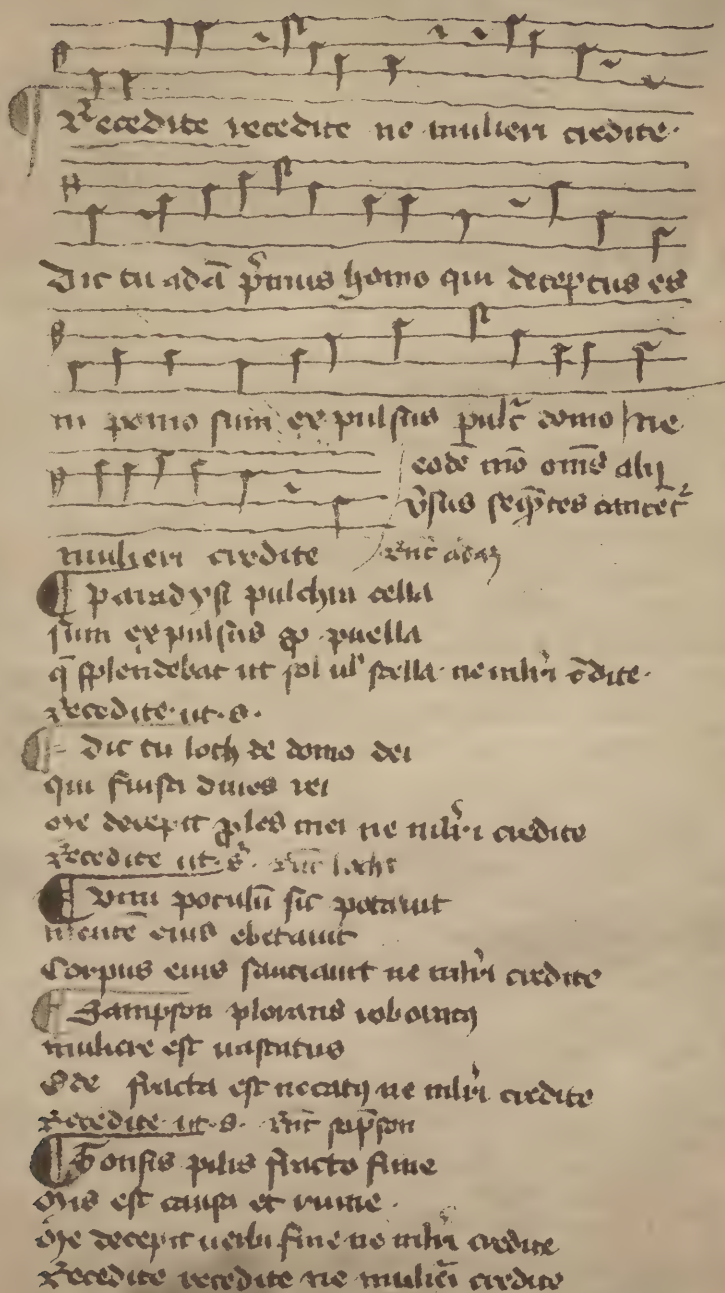 Recedite recedite ne mulieri credite.
Dic tu adā p̄mus homo qui deceptus es
in pomo sum expulsus pulc̄ domo ne
eodē mō om̄s alij
v̄sus seq̄ntes cantēt̄
mulieri credite
paradysi pulchra cella
sum expulsus p puella
q̄ splendebat ut sol ul' stella ne mlīri c̄dite.
Recedite ut s.
Dic tu loth de domo dei
qui fuisti diues rei
me decepit ples mei ne mlīri credite
Recedite ut s. loth
vini poculū sic potauit
mentē eius ebetauit
Corpus eius sauciauit ne mlīri credite
Sampson plorans
muliere est uastatus
Ede fracta est necatꝫ ne mlīri credite
Recedite ut s. sāpson
Tonsis pilis fracto fune
est causa et
me decepit ne mlīri credite
Recedite recedite ne mulieri credite